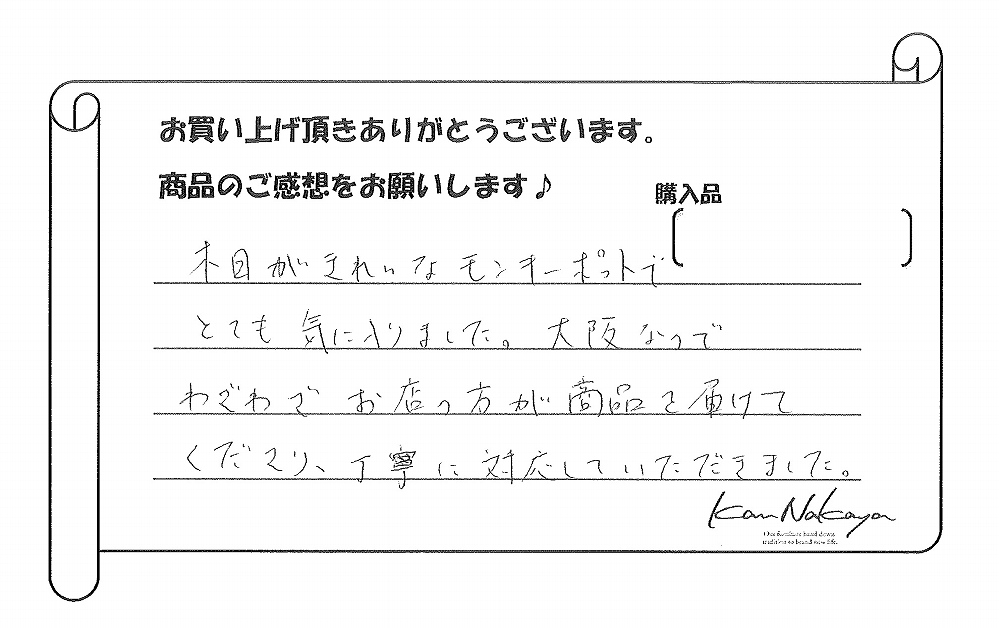 お買い上げ頂きありがとうございます。
商品のご感想をお願いします♪
購入品
木目がきれいなモンキーポットで
とても気に入りました。大阪なので
わざわざお店の方が商品を届けて
くださり、丁寧に対応していただきました。
Kan Nakaya
Our furniture hand down
tradition to brand new life.